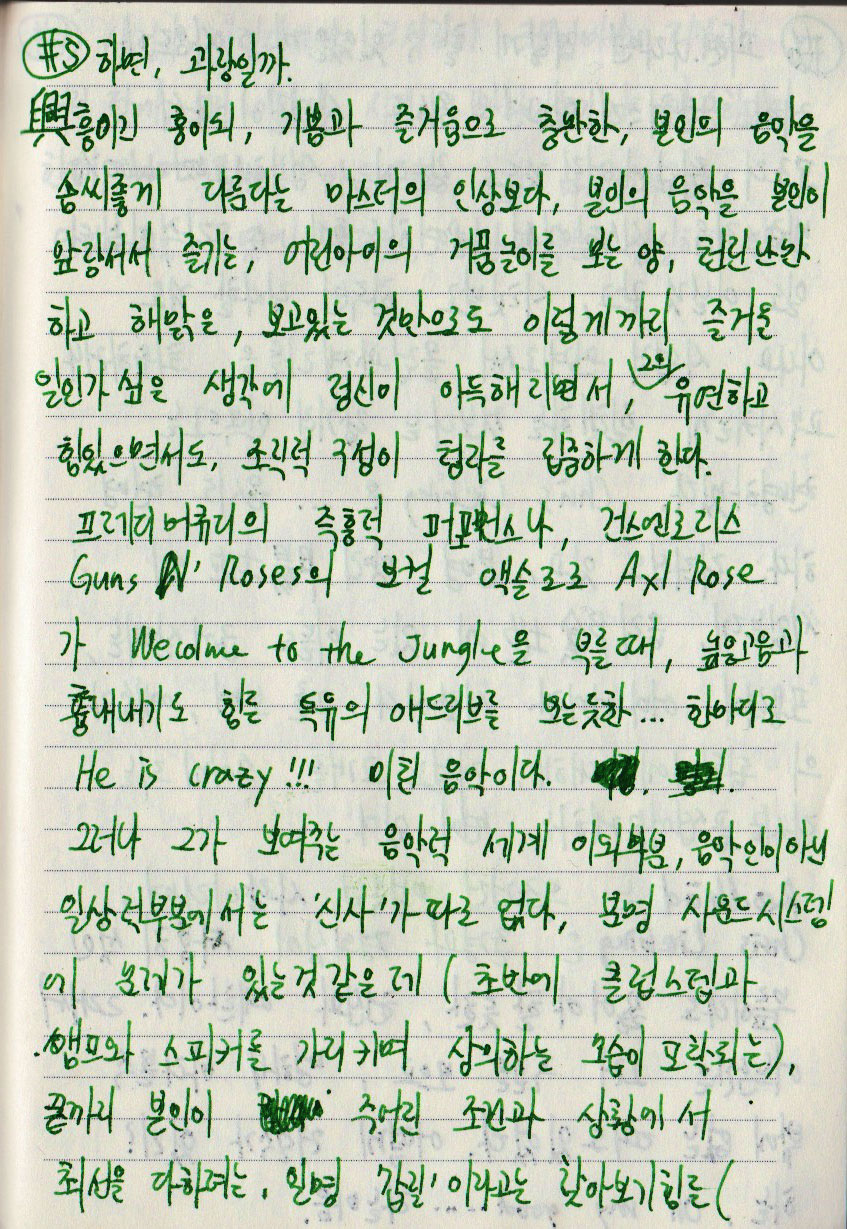 #5 하면, 과장일까.
興흥이긴 흥이되, 기쁨과 즐거움으로 충만한, 본인의 음악을
솜씨좋게 다룸다는 마스터의 인상보다, 본인의 음악을 본인이
앞장서서 즐기는, 어린아이의 거품놀이를 보는 양, 천진난만
하고 해맑은, 보고있는 것만으로도 이렇게까지 즐거울
일인가 싶을 생각에 정신이 아득해지면서, 그의 유연하고
힘있으면서도, 조직적 구성이 청자를 집중하게 한다.
프레디머큐리의 즉흥적 퍼포먼스나, 건스엔로지스
Guns N' Roses의 보컬 액슬로즈 Axl Rose
가 Welcome to the Jungle을 부를때, 높은고음과
흉내내기도 힘들 특유의 애드리브를 보는듯한... 한마디로
He is crazy!!! 미친 음악이다.
그러나 그가 보여주는 음악적 세계 이외의부분, 음악인이아닌
일상적부분에서는 '신사'가따로 없다, 분명 사운드시스템
에 문제가 있는것같은데 (초반에 클럽스텝과
앰프와 스피커를 가리키며 상의하는 모습이 포착되는),
끝까지 본인이 주어진 조건과 상황에서
최선을 다하려는, 일명 '갑질'이라고는 찾아보기힘들(